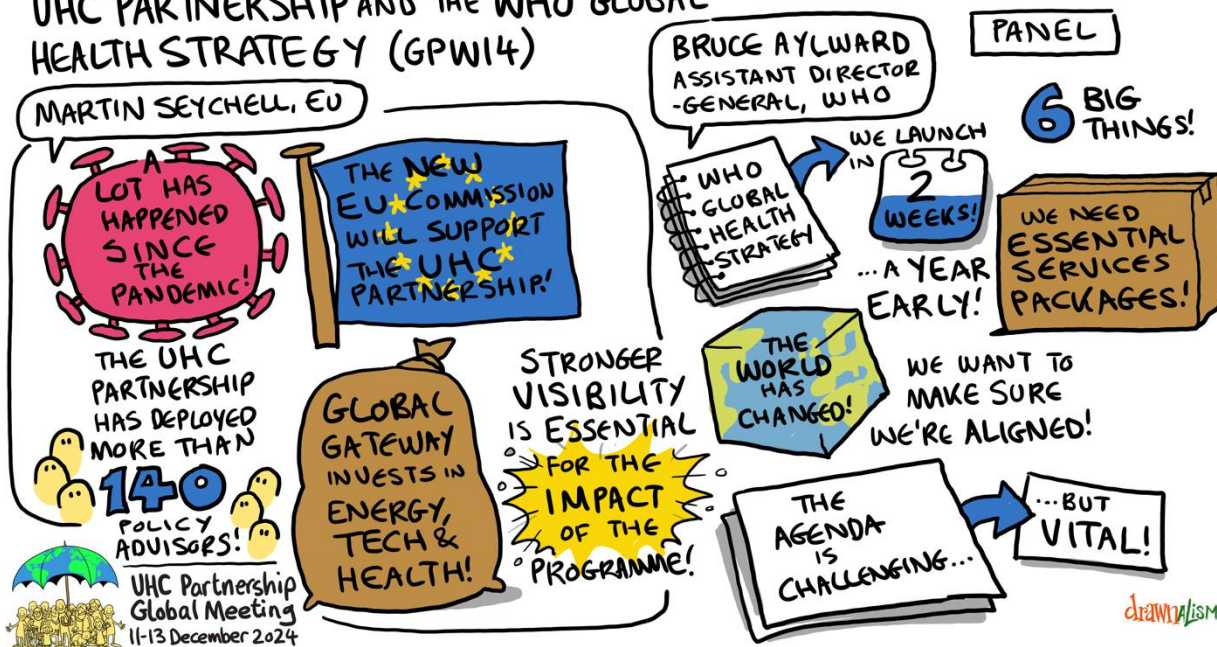 UHC PARTNERSHIP AND THE WHO GLOBAL
HEALTH STRATEGY (GPW14)
MARTIN SEYCHELL, EU
A
LOT HAS
HAPPENED
SINCE
THE
PANDEMIC!
THE NEW
EU COMMISSION
WILL SUPPORT
THE UHC
PARTNERSHIP!
THE UHC
PARTNERSHIP
HAS DEPLOYED
MORE THAN
140
POLICY
ADVISORS!
GLOBAL
GATEWAY
INVESTS IN
ENERGY,
TECH &
HEALTH!
STRONGER
VISIBILITY
IS ESSENTIAL
FOR THE
IMPACT
OF THE
PROGRAMME!
BRUCE AYLWARD
ASSISTANT DIRECTOR
-GENERAL, WHO
PANEL
WHO
GLOBAL
HEALTH
STRATEGY
WE LAUNCH
IN
2
WEEKS!
...A YEAR
EARLY!
6 BIG
THINGS!
WE NEED
ESSENTIAL
SERVICES
PACKAGES!
THE
WORLD
HAS
CHANGED!
WE WANT TO
MAKE SURE
WE'RE ALIGNED!
THE
AGENDA
IS
CHALLENGING...
...BUT
VITAL!
UHC Partnership
Global Meeting
11-13 December 2024
drawnalism